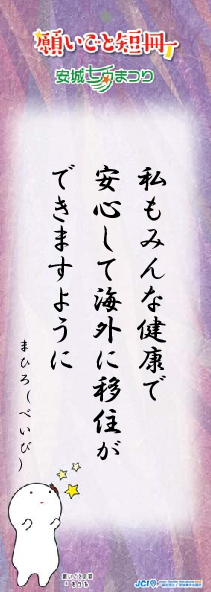 願いごと短冊
安城七夕まつり
私もみんな健康で
安心して海外に移住が
できますように
まひろ(べいび)
JCI